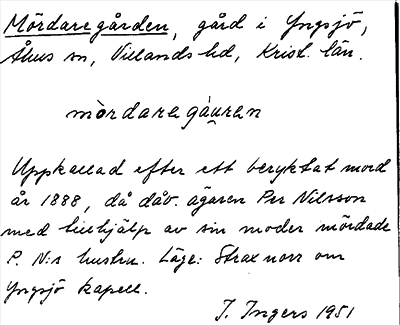 Mördaregården, gård i Yngsjö,
Åhus sn, Villands hd, Krist. län.
mördaregáu̯ran
Uppkallad efter ett beryktat mord
år 1888, då dåv. ägaren Per Nilsson
med tillhjälp av sin moder mördade
P. N:s hustru. Läge: Strax norr om
Yngsjö kapell.
I. Ingers 1951